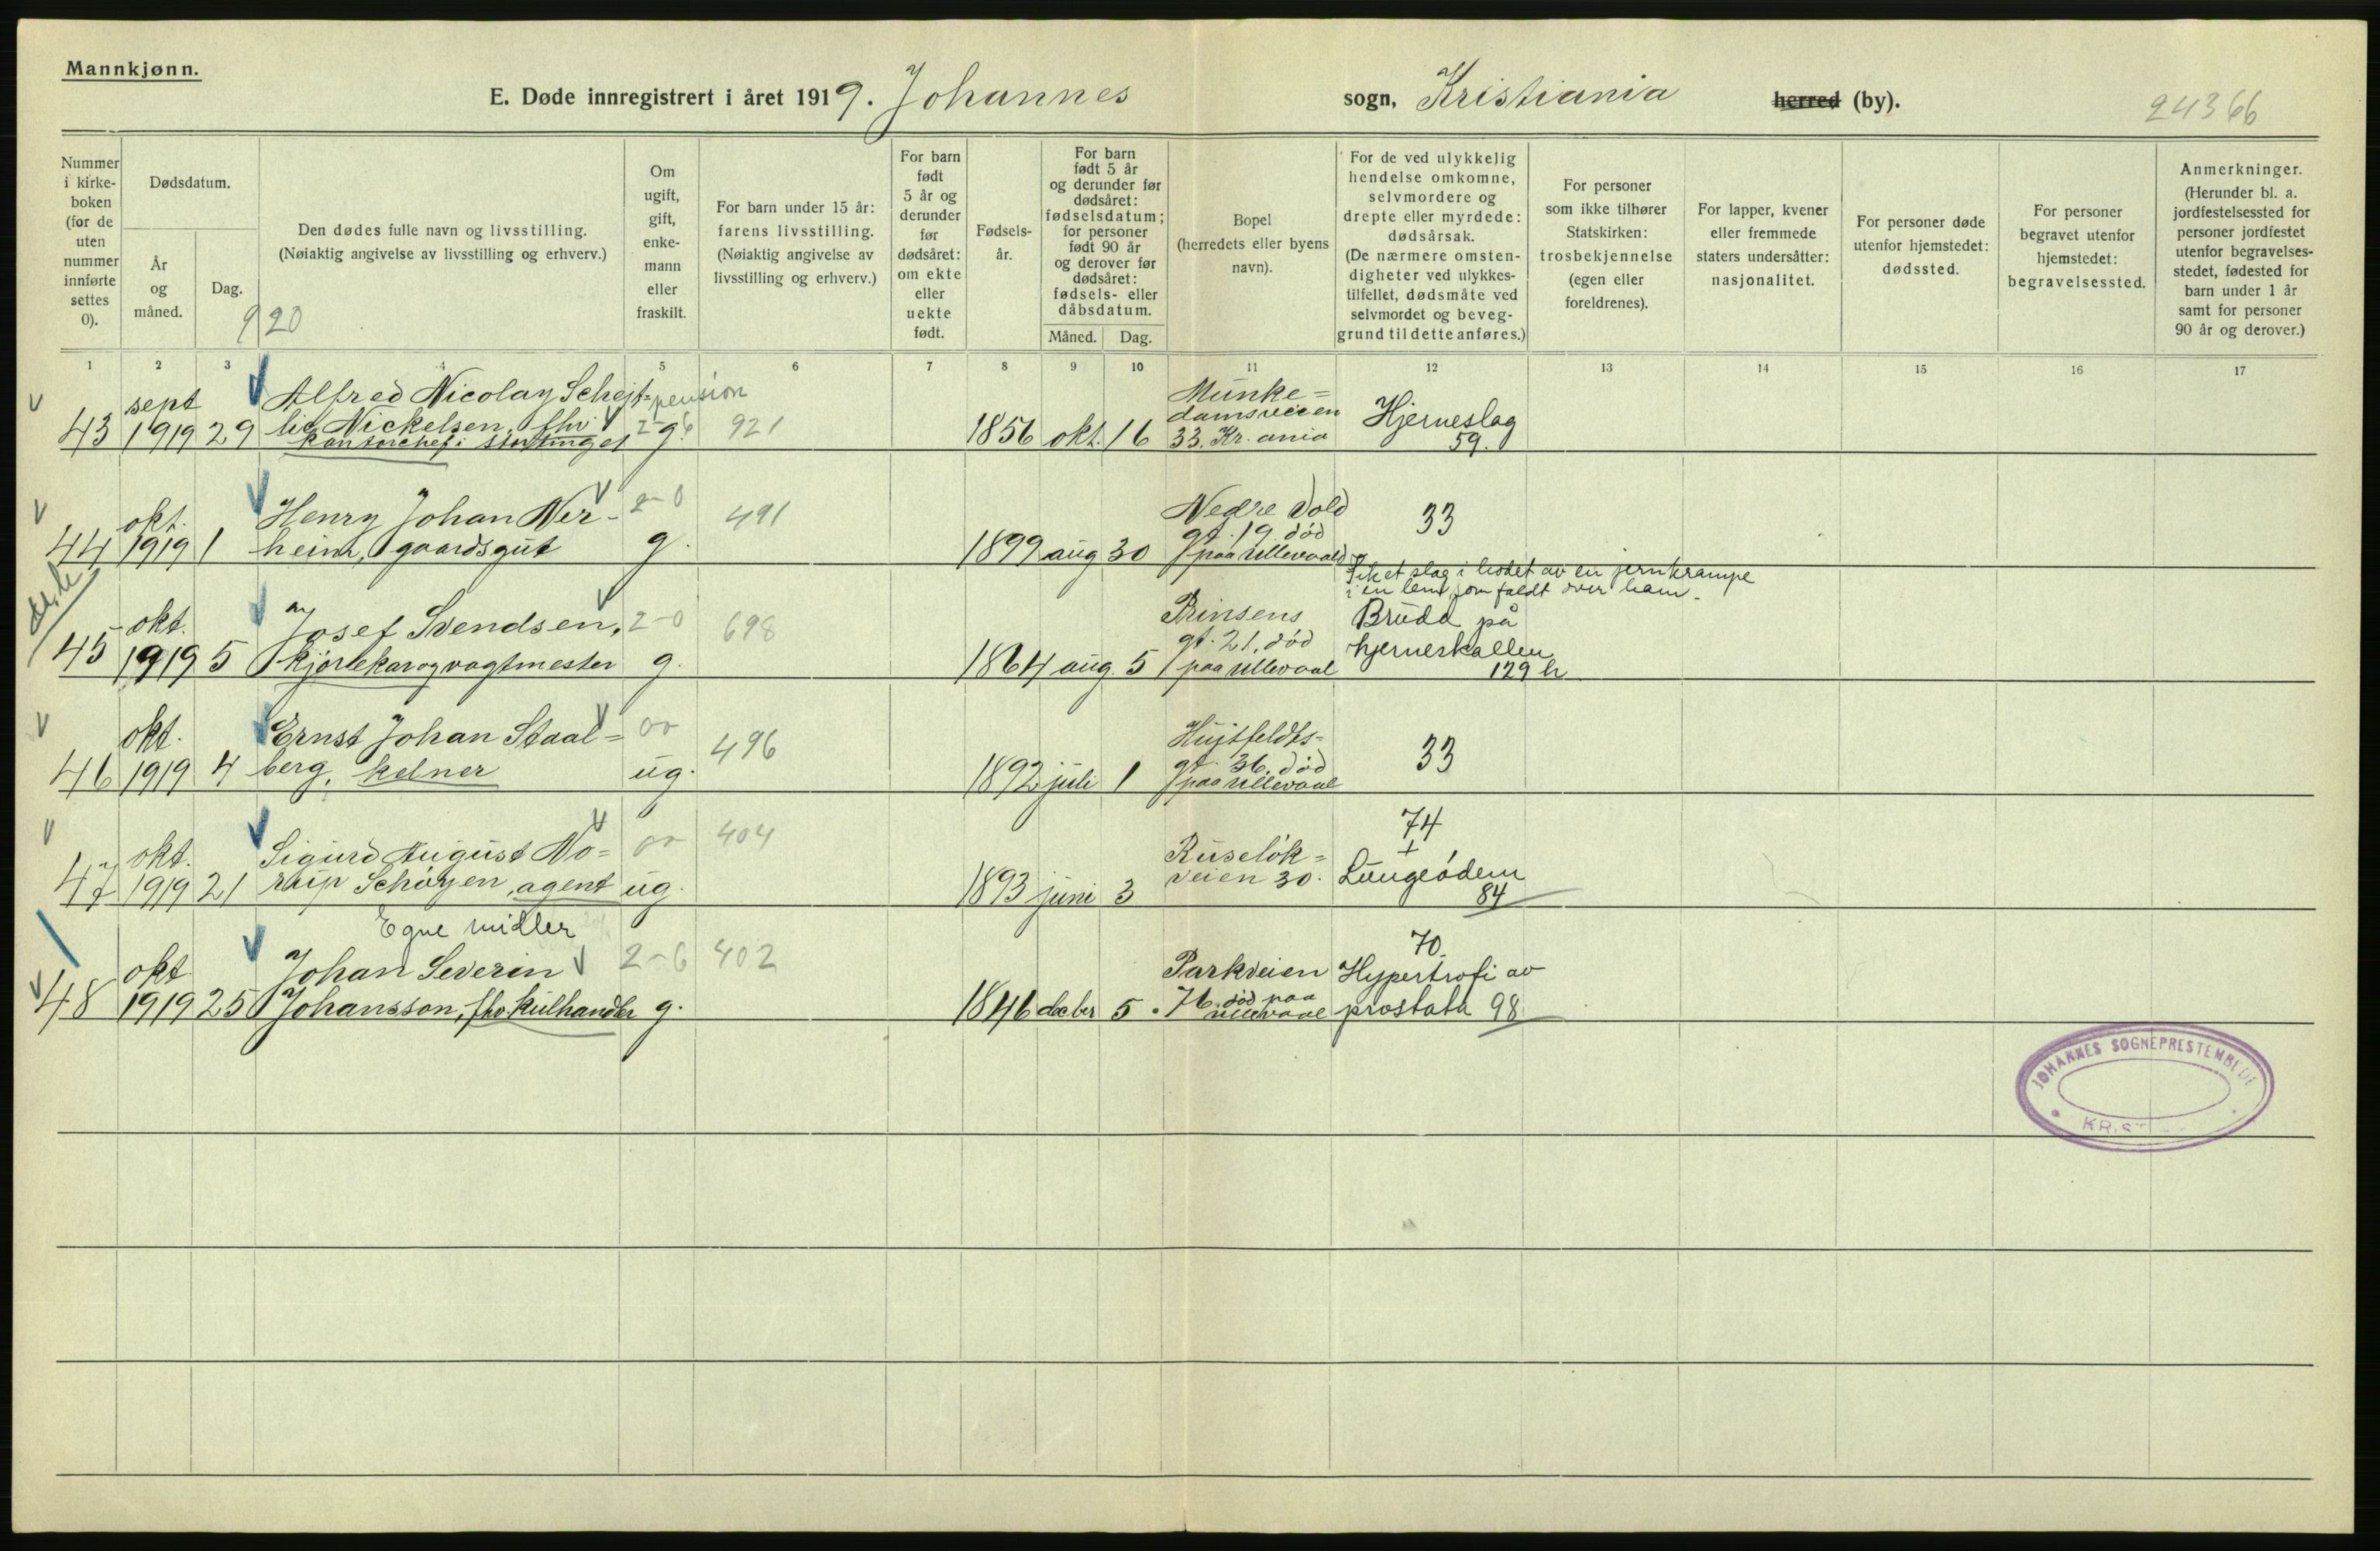 Mannkjønn.
E. Døde innregistrert i året 1919. Johannes sogn, Kristiania herred (by).
24366
Nummer i kirke-boken (for de uten nummer innførte settes 0).
Dødsdatum.
År og måned.
Dag.
Den dødes fulle navn og livsstilling.
(Nøiaktig angivelse av livsstilling og erhverv.)
Om ugift, gift, enke-mann eller fraskilt.
For barn under 15 år: farens livsstilling.
(Nøiaktig angivelse av livsstilling og erhverv.)
For barn født 5 år og derunder før dødsåret: om ekte eller uekte født.
Fødsels-år.
For barn født 5 år og derunder før dødsåret: fødselsdatum; for personer født 90 år og derover før dødsåret: fødsels- eller dåbsdatum.
Måned.
Dag.
Bopel
(herredets eller byens navn).
For de ved ulykkelig hendelse omkomne, selvmordere og drepte eller myrdede: dødsårsak.
(De nærmere omsten-digheter ved ulykkes-tilfellet, dødsmåte ved selvmordet og beveg-grund til dette anføres.)
For personer som ikke tilhører Statskirken: trosbekjennelse (egen eller foreldrenes).
For lapper, kvener eller fremmede staters undersåtter: nasjonalitet.
For personer døde utenfor hjemstedet: dødssted.
For personer begravet utenfor hjemstedet: begravelsessted.
Anmerkninger.
(Herunder bl. a. jordfestelsessted for personer jordfestet utenfor begravelses-stedet, fødested for barn under 1 år samt for personer 90 år og derover.)
920
1 2 3 4 5 6 7 8 9 10 11 12 13 14 15 16 17
sept Alfred Nicolay Schejt= pension Munke=
43 1919 29 lie Nickelsen, fhv 2-6 g. 921 1856 okt. 16 damsveien Hjerneslag
kontorchef i stortinget 33. Kr.ania 59.
okt. Henry Johan Ner- 2-0 491 Nedre Vold
44 1919 1 heim, gaardsgut g. 1899 aug 30 gt. 19. død 33
paa Ullevaal
Fik et slag i hodet av en jernkrampe
i en lem, som faldt over ham.
okt. Josef Svendsen, 2-0 698 Prinsens Brudd på
45 1919 5 kjørekar og vagtmester g. 1864 aug. 5 gt. 21, død hjerneskallen
paa Ullevaal 129 h
okt. Ernst Johan Staal= 00 496 Huitfeldts=
46 1919 4 berg, kelner ug. 1892 juli 1 gt. 36, død 33
paa Ullevaal
okt. Sigurd August No= 00 404 Ruseløk= 74
47 1919 21 rup Schøyen, agent ug. 1893 juni 3 veien 30. Lungeødem
84
Egne midler
okt Johan Severin 2-6 402 Parkveien 70.
48 1919 25 Johansson, fhv. kulhandler g. 1846 decbr 5. 76, død paa Hypertrofi av
Ullevaal prostata 98
JOHANNES SOGNEPRESTEMBEDE
KRIST